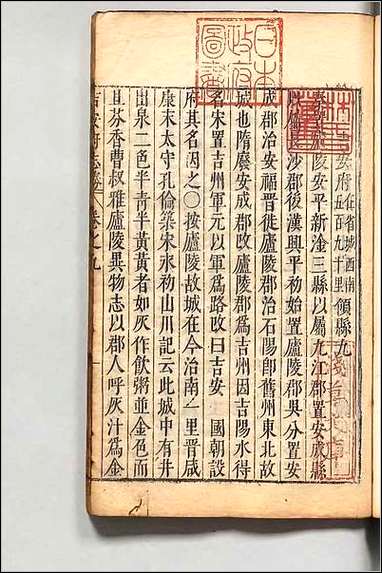 日本政府圖書
安府在省城西南五百九十里領縣九
陵安平新淦三縣以屬九江郡置安成縣
沙郡後漢興平初始置廬陵郡吳分置安
成郡治安福晉徙廬陵郡治石陽卽舊州東北故
城也隋廢安成郡改廬陵郡爲吉州因吉陽水得
名宋置吉州軍元以軍爲路改曰吉安 國朝設
府其名因之○按廬陵故城在今治南一里晉咸
康末太守孔倫築宋永初山川記云此城中有井
出泉二色半青半黃黃者如灰作飲粥並金色而
且芬香曹叔雅廬陵異物志以郡人呼灰汁爲金
卷之九
淺草文庫